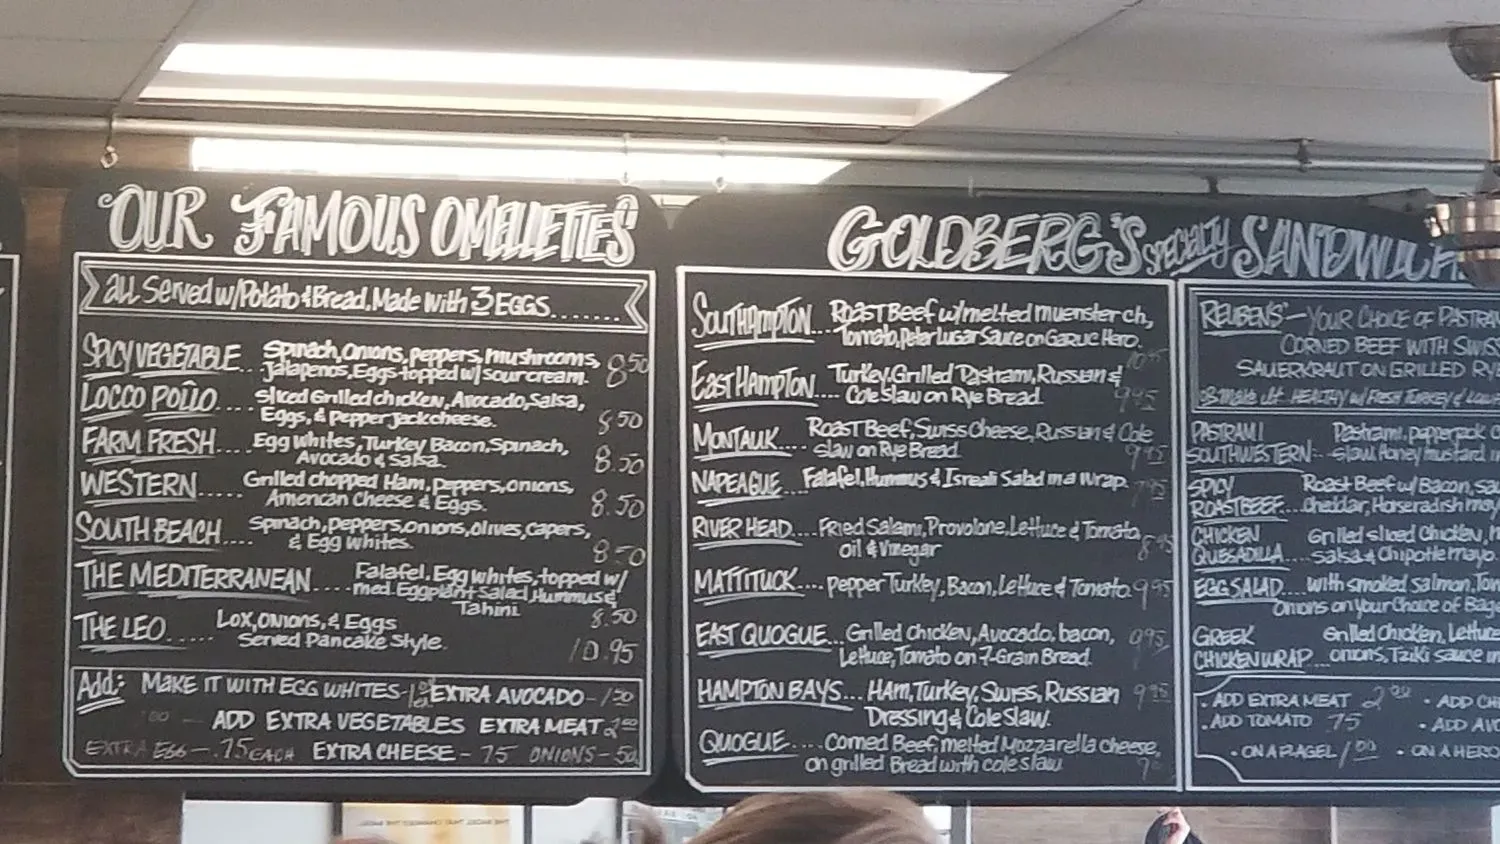 OUR FAMOUS OMELLETTES
all Served w/Potato & Bread, Made with 3 EGGS.......
SPICY VEGETABLE... Spinach, onions, peppers, mushrooms,
Jalapenos, Eggs topped w/ sour cream. 8.50
LOCCO POLLO.... Sliced Grilled chicken, Avocado, Salsa,
Eggs, & Pepper Jack cheese. 8.50
FARM FRESH.... Egg whites, Turkey Bacon, Spinach,
Avocado & Salsa. 8.50
WESTERN..... Grilled chopped Ham, peppers, onions,
American Cheese & Eggs. 8.50
SOUTH BEACH.... Spinach, peppers, onions, olives, capers,
& Egg whites. 8.50
THE MEDITERRANEAN.... Falafel, Egg whites, topped w/
med. Eggplant Salad, Hummus &
Tahini. 8.50
THE LEO..... Lox, onions, & Eggs
Served Pancake Style. 10.95
Add: MAKE IT WITH EGG WHITES- EXTRA AVOCADO- 1.50
ADD EXTRA VEGETABLES EXTRA MEAT 2.00
EXTRA EGG - .75 EACH EXTRA CHEESE - 75 ONIONS - 50
GOLDBERG'S SPECIALTY
SOUTHAMPTON... Roast Beef w/melted muenster ch,
Tomato, Peter Lugar Sauce on Garlic Hero.
10.95
EAST HAMPTON.... Turkey, Grilled Pastrami, Russian &
Cole Slaw on Rye Bread. 9.95
MONTAUK... Roast Beef, Swiss Cheese, Russian & Cole
Slaw on Rye Bread. 9.95
NAPEAGUE.... Falafel, Hummus & Isreali Salad in a wrap. 7.95
RIVER HEAD.... Fried Salami, Provolone, Lettuce & Tomato,
oil & Vinegar 8.95
MATTITUCK.... Pepper Turkey, Bacon, Lettuce & Tomato. 9.95
EAST QUOGUE... Grilled Chicken, Avocado, bacon,
Lettuce, Tomato on 7-Grain Bread. 9.95
HAMPTON BAYS... Ham, Turkey, Swiss, Russian
Dressing & Cole Slaw. 9.95
QUOGUE.... Corned Beef, melted Mozzarella cheese,
on grilled Bread with cole slaw
REUBEN'S - YOUR CHOICE OF
CORNED BEEF WITH
SAUERKRAUT ON GRILLED
HEALTHY w/ FRESH TURKEY &
PASTRAMI Pastrami, pepperjack
SOUTHWESTERN.. Slaw, honey mustard
SPICY Roast Beef w/ Bacon,
ROAST BEEF.... cheddar, Horseradish
CHICKEN Grilled sliced Chicken,
QUESADILLA.... Salsa & Chipotle mayo.
EGG SALAD.... with smoked salmon,
onions on your Choice of
GREEK Grilled Chicken,
CHICKEN WRAP.... onions, Tziki sauce
• ADD EXTRA MEAT 2.00 • ADD
• ADD TOMATO .75 • ADD
• ON A FLAGEL 1.00 • ON A HERO